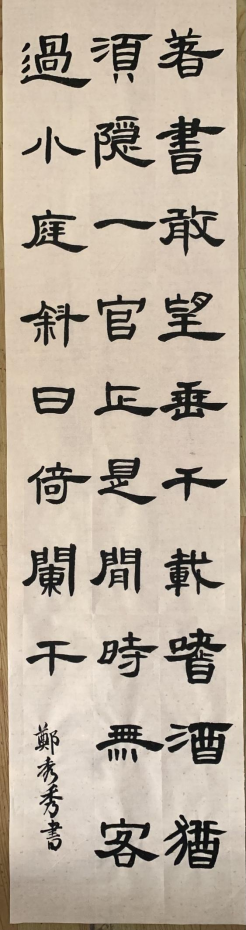 著書敢望垂千載嗜酒猶
須隱一官正是閒時無客
過小庭斜日倚闌干
鄭秀秀書